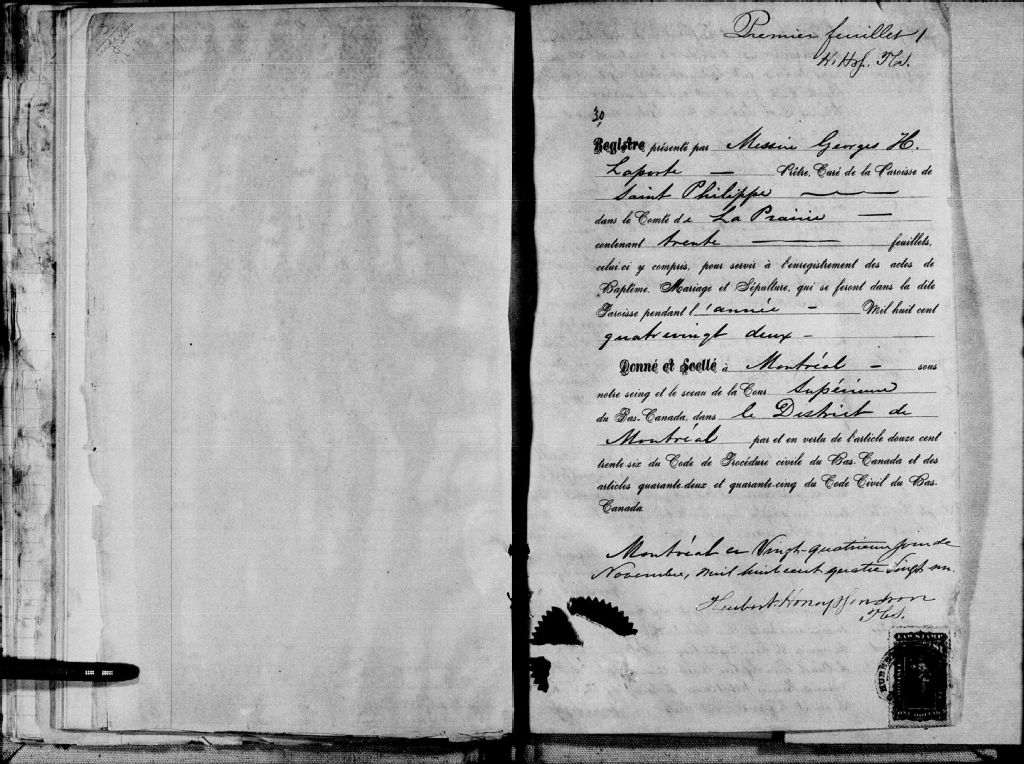 Premier feuillet 1
H. H. & G. P.C.S.
30,
Registre présenté par Messire Georges H.
Laporte — Prêtre, Curé de la Paroisse de
Saint Philippe —
dans le Comté de La Prairie —
contenant trente — feuillets,
celui-ci y compris, pour servir à l'enregistrement des actes de
Baptême, Mariage et Sépulture, qui se feront dans la dite
Paroisse pendant l'année — Mil huit cent
quatrevingt deux —
Donné et Scellé à Montréal — sous
notre seing et le sceau de la Cour Supérieure
du Bas-Canada, dans le District de
Montréal par et en vertu de l'article douze cent
trente-six du Code de Procédure civile du Bas-Canada et des
articles quarante-deux et quarante-cinq du Code Civil du Bas-
Canada.
Montréal ce Vingt-quatrieme jour de
Novembre, mil huit cent quatre Vingt un.
LAW STAMP
ONE DOLLAR